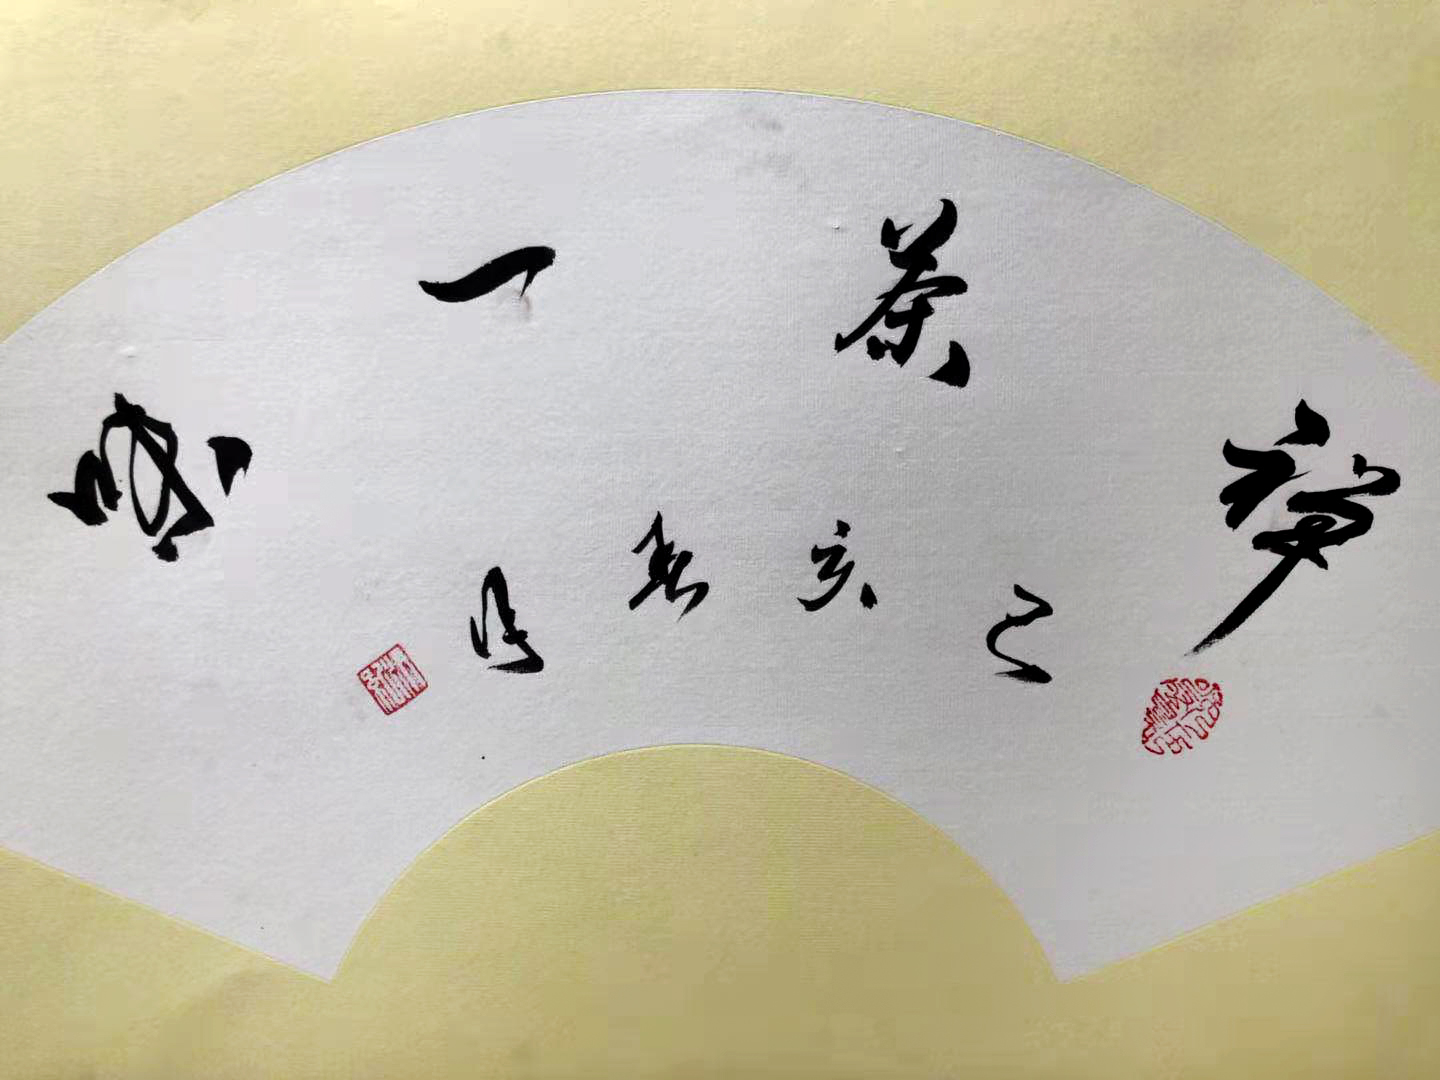 禅茶一味
己亥春月